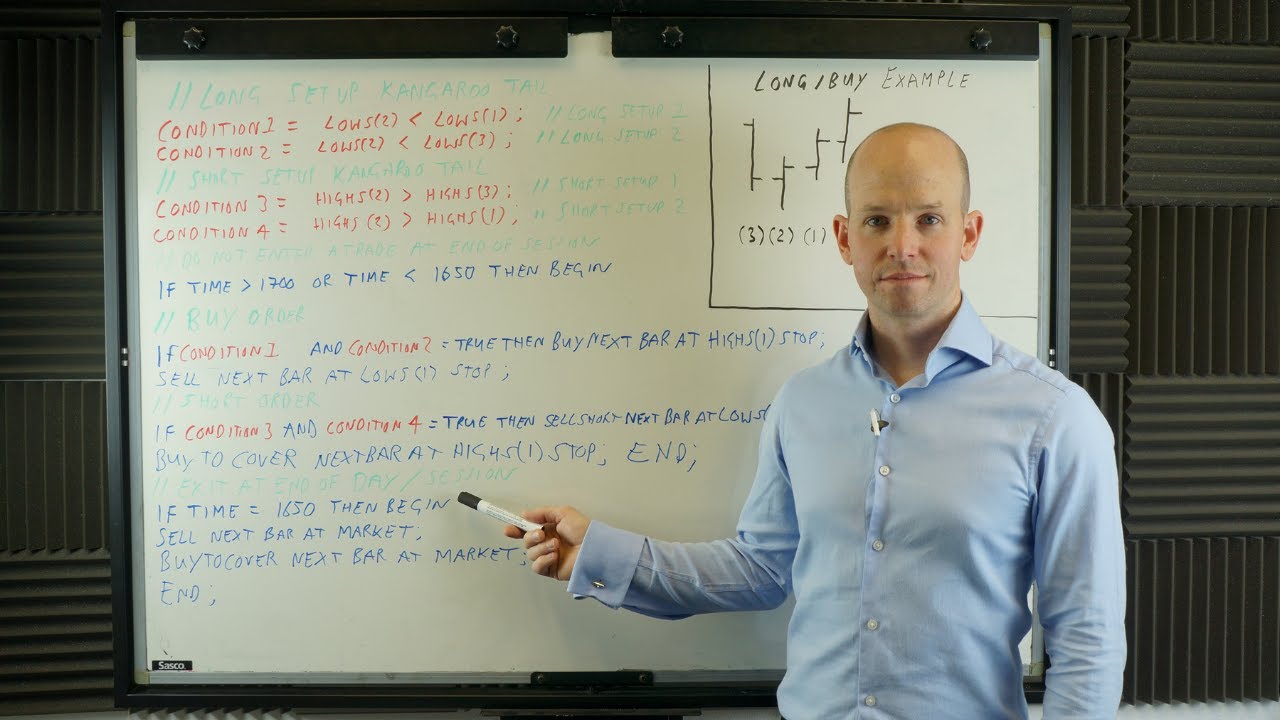 // LONG SETUP KANGAROO TAIL
CONDITION1 = LOWS(2) < LOWS(1); // LONG SETUP 1
CONDITION2 = LOWS(2) < LOWS(3); // LONG SETUP 2
// SHORT SETUP KANGAROO TAIL
CONDITION 3 = HIGHS(2) > HIGHS(3); // SHORT SETUP 1
CONDITION 4 = HIGHS(2) > HIGHS(1); // SHORT SETUP 2
// DO NOT ENTER A TRADE AT END OF SESSION
IF TIME > 1700 OR TIME < 1650 THEN BEGIN
// BUY ORDER
IF CONDITION1 AND CONDITION2 = TRUE THEN BUY NEXT BAR AT HIGHS(1) STOP;
SELL NEXT BAR AT LOWS(1) STOP;
// SHORT ORDER
IF CONDITION3 AND CONDITION 4 = TRUE THEN SELLSHORT NEXT BAR AT LOWS(
BUY TO COVER NEXT BAR AT HIGHS(1) STOP; END;
// EXIT AT END OF DAY/SESSION
IF TIME = 1650 THEN BEGIN
SELL NEXT BAR AT MARKET;
BUYTOCOVER NEXT BAR AT MARKET;
END;
LONG/BUY EXAMPLE
(3)(2) (1)
Sasco